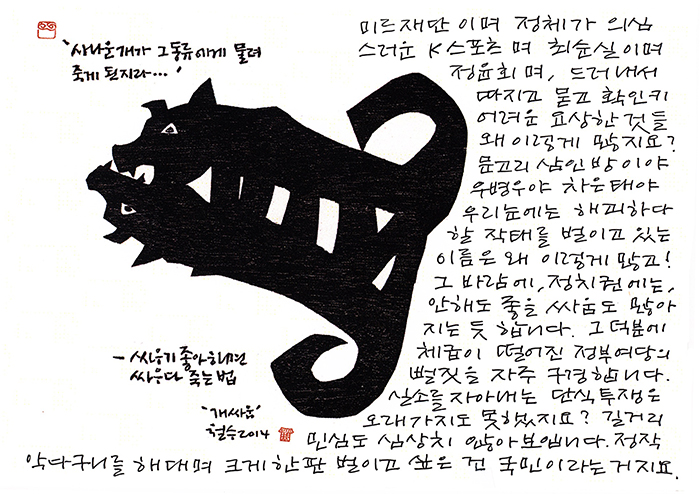 "사나운개가 그동류에게 물려
죽게 된지라..."
미르재단이며 정체가 의심
스러운 K스포츠며 최순실이며
정윤회며, 드러내서
따지고 묻고 확인키
어려운 요상한 것들
왜 이렇게 많지요?
문고리 삼인방이야
우병우야 차은태야
우리눈에는 해피하다
할 작태를 벌이고 있는
이름은 왜 이렇게 많고!
그 바람에, 정치권에는,
안해도 좋을 싸움도 많아
지는 듯 합니다. 그 덕분에
체급이 떨어진 정부여당의
뻘짓을 자주 구경합니다.
실소를 자아내는 단식투쟁은
오래가지도 못했지요? 길거리
민심도 심상치 않아보입니다. 정작
악다구니를 해대며 크게 한판 벌이고 싶은 건 국민이라는거지요.
- 싸우기 좋아하면
싸우다 죽는 법
"개싸움"
철수 2014